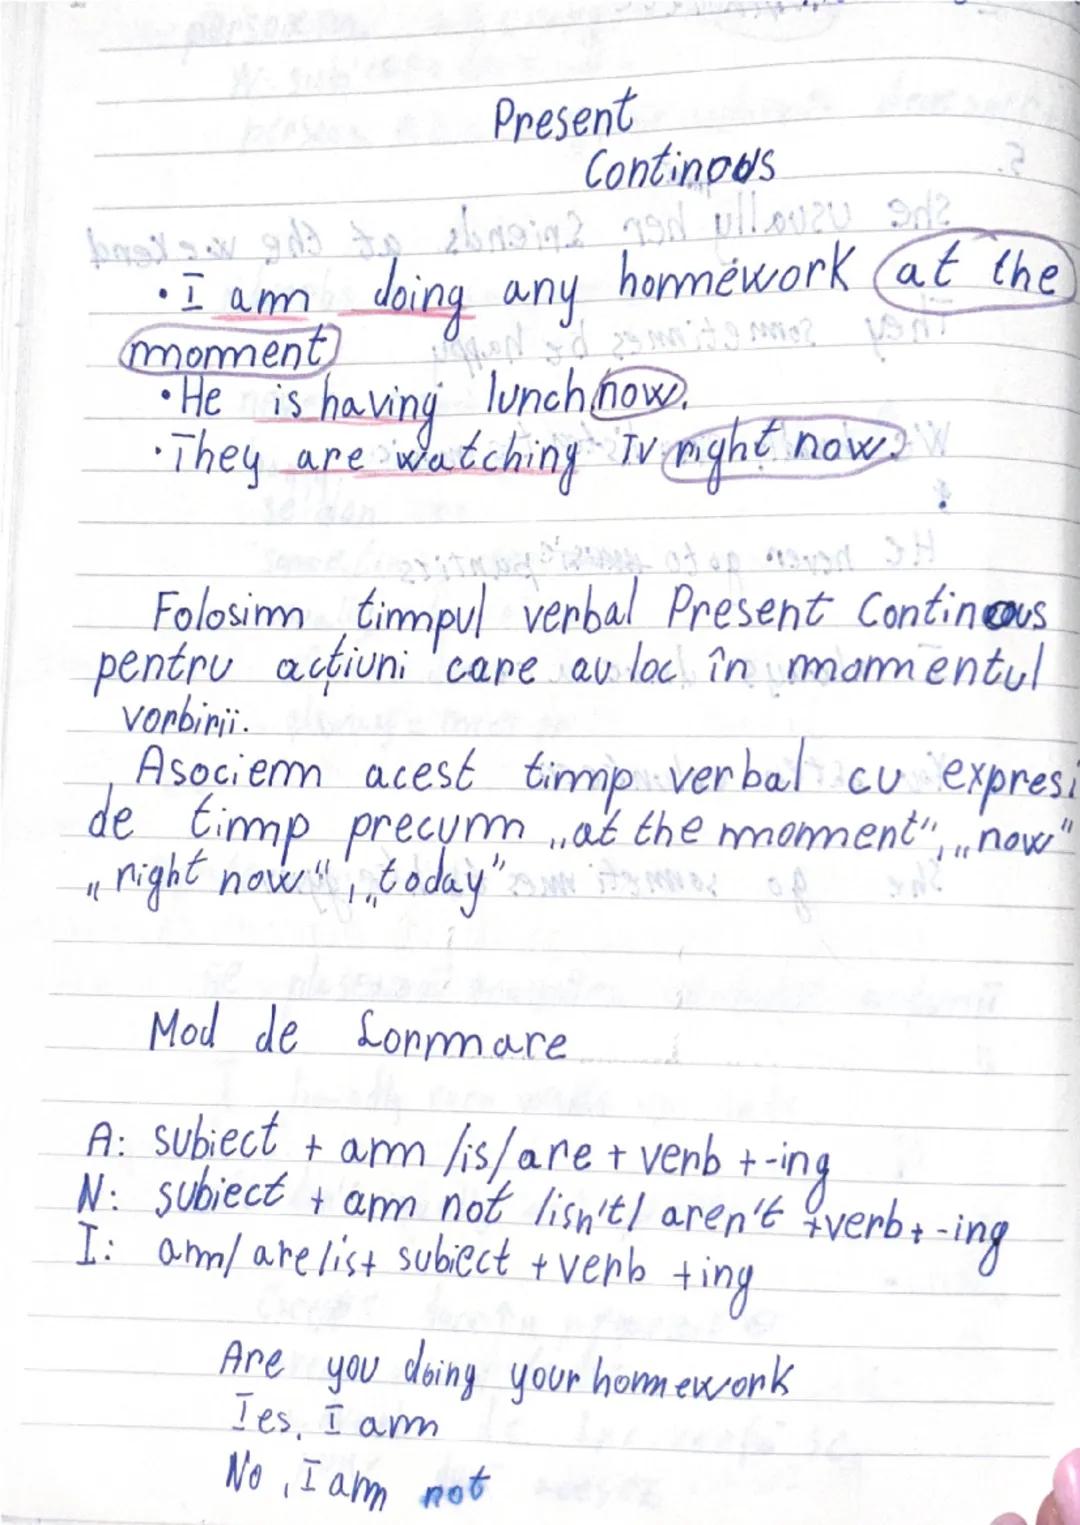 Present
Continous
• I am doing any homework at the
moment
• He is having lunch now.
• They are watching TV right now.
Folosim timpul verbal Present Continous
pentru acțiuni care au loc în momentul
vorbirii.
Asociem acest timp verbal cu expresi
de timp precum „at the moment", „now"
„right now", „today"
Mod de formare
A: subiect + am /is/are + verb + -ing
N: subiect + am not /isn't/ aren't +verb+ -ing
I: am/ are/is+ subiect + verb +ing
Are you doing your homework
Ies, I am
No, I am not